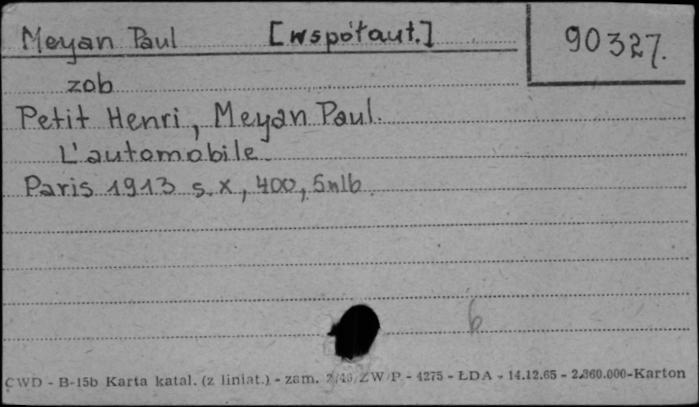 Meyan Paul [współaut.] 90327.
zob
Petit Henri, Meyan Paul.
L'automobile
Paris 1913 s. X, 400, 5nlb.
6
CWD - B-15b Karta katal. (z liniat.) - zam. 2/46/ZW/P - 4275 - ŁDA - 14.12.65 - 2.360.000-Karton